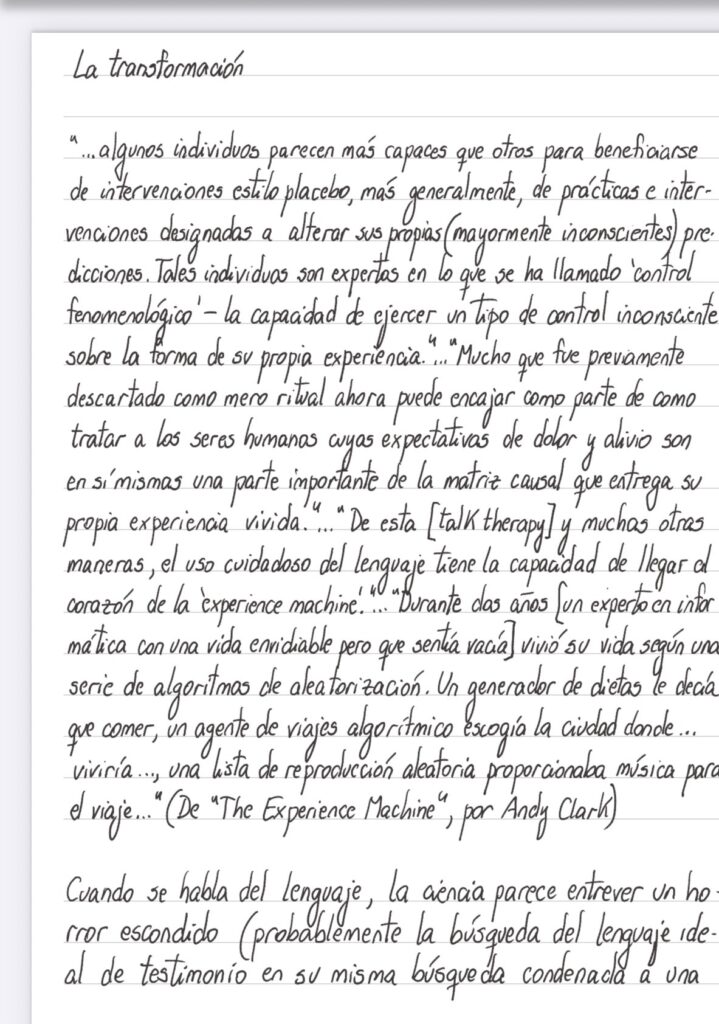 La transformación
"...algunos individuos parecen más capaces que otros para beneficiarse
de intervenciones estilo placebo, más generalmente, de prácticas e inter-
venciones designadas a alterar sus propias (mayormente inconscientes) pre-
dicciones. Tales individuos son expertos en lo que se ha llamado 'control
fenomenológico' – la capacidad de ejercer un tipo de control inconsciente
sobre la forma de su propia experiencia."..."Mucho que fue previamente
descartado como mero ritual ahora puede encajar como parte de como
tratar a los seres humanos cuyas expectativas de dolor y alivio son
en sí mismas una parte importante de la matriz causal que entrega su
propia experiencia vivida."..."De esta [talk therapy] y muchas otras
maneras, el uso cuidadoso del lenguaje tiene la capacidad de llegar al
corazón de la 'experience machine'."..."Durante dos años [un experto en infor
mática con una vida envidiable pero que sentía vacía] vivió su vida según una
serie de algoritmos de aleatorización. Un generador de dietas le decía
que comer, un agente de viajes algorítmico escogía la ciudad donde...
viviría..., una lista de reproducción aleatoria proporcionaba música para
el viaje..." (De "The Experience Machine", por Andy Clark)
Cuando se habla del lenguaje, la ciencia parece entrever un ho-
rror escondido (probablemente la búsqueda del lenguaje ide-
al de testimonio en su misma búsqueda condenada a una